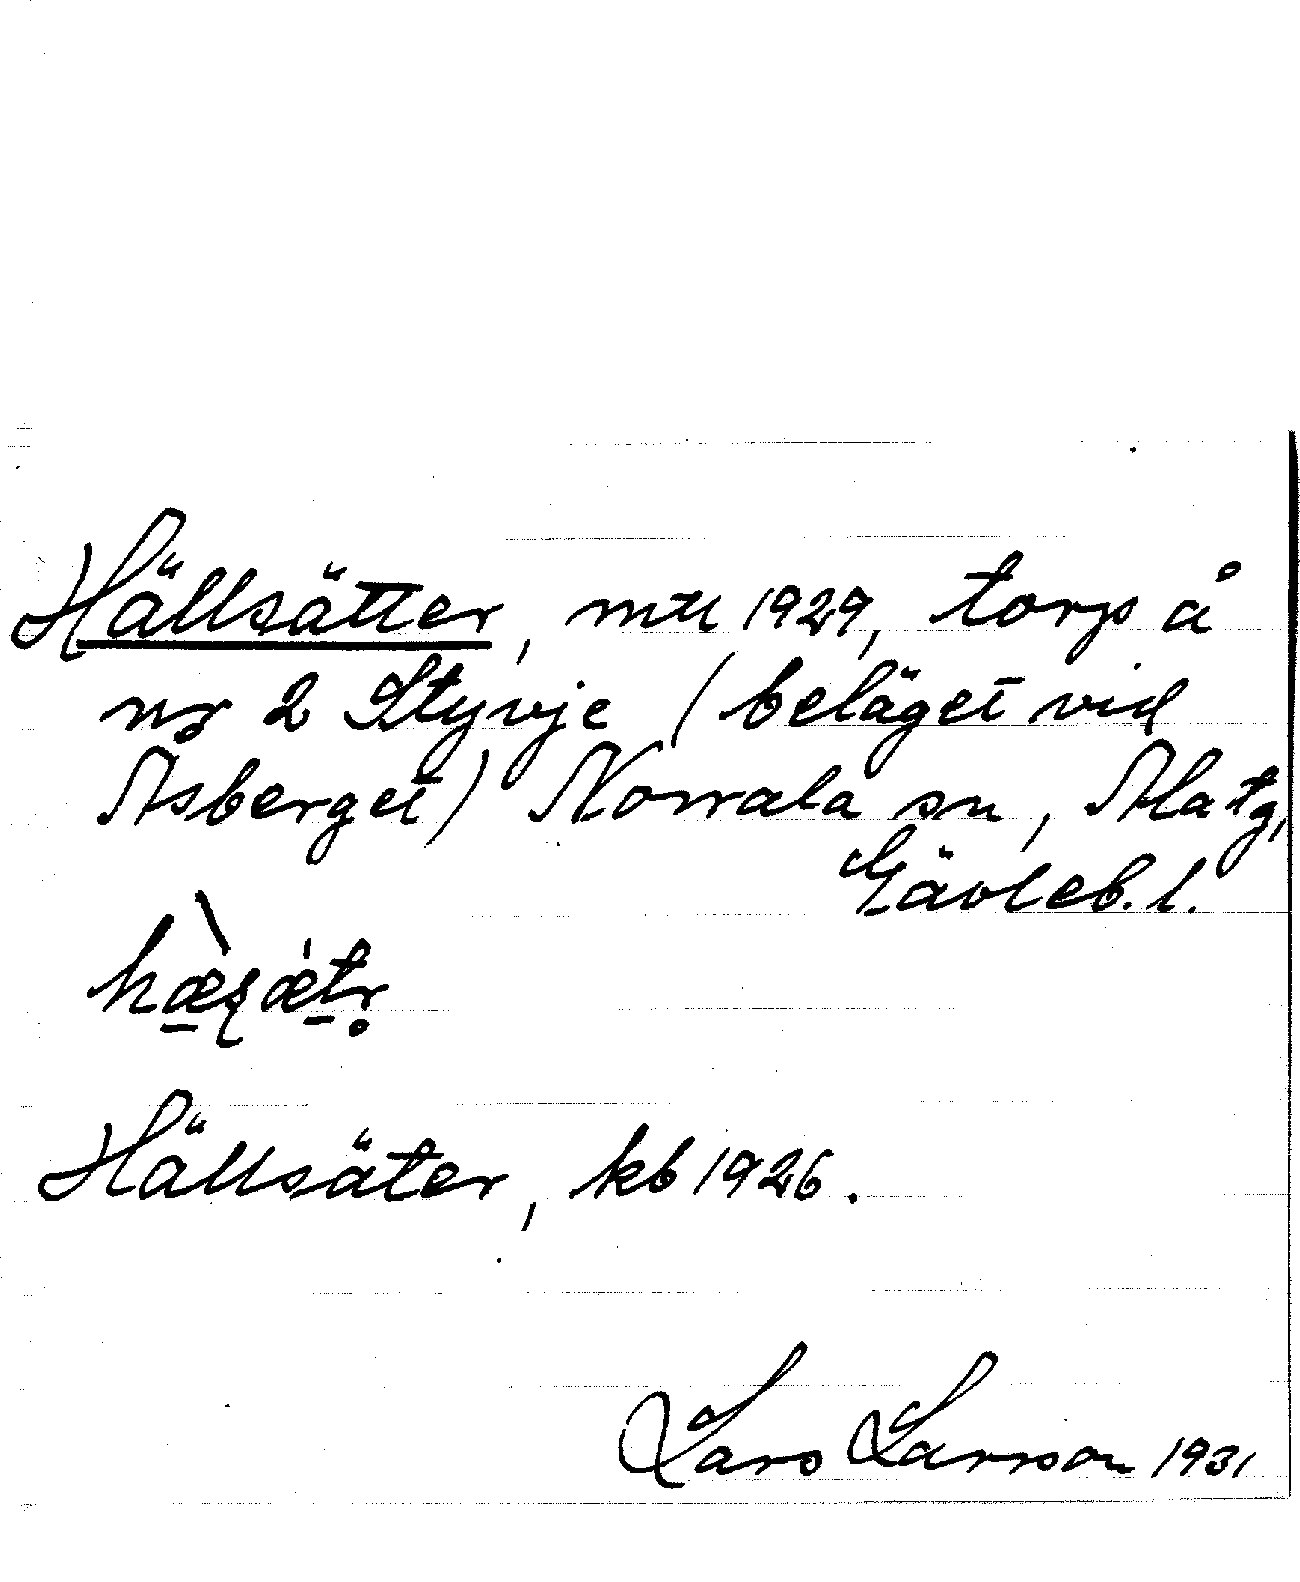 Hällsätter, mtl 1929, torp å
nr 2 Styvje (beläget vid
Asberget) Norrala sn, Ala tg,
Gävleb. l.
Hällsäter, kb 1926.
Lars Larsson 1931